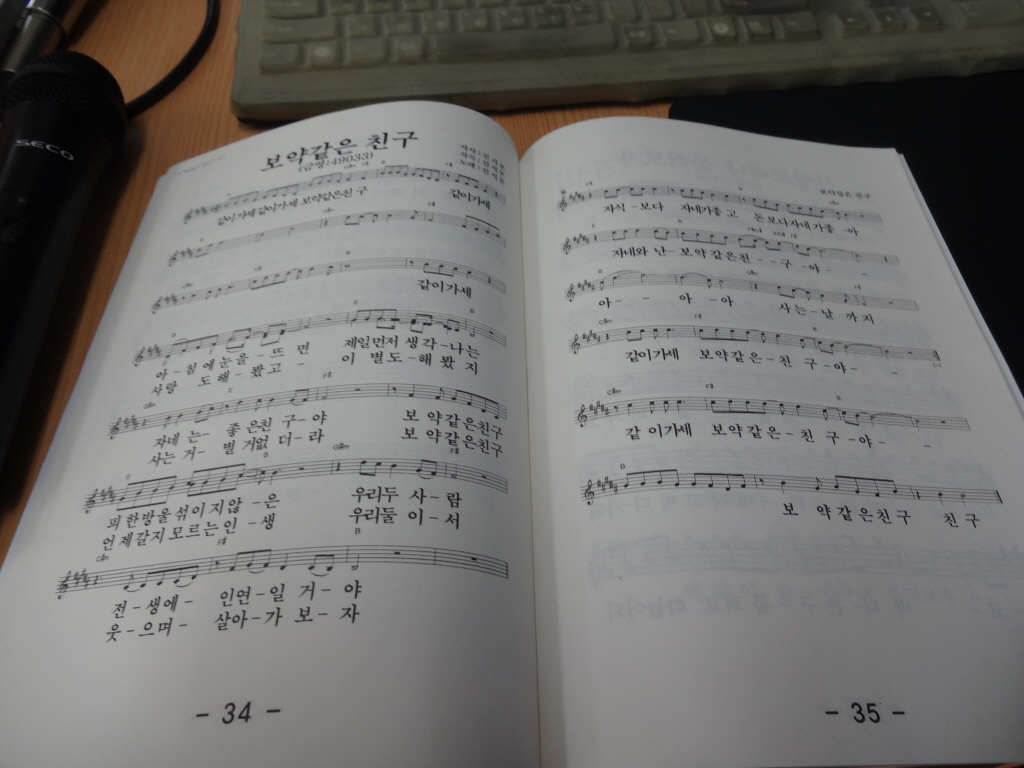 SECO
보약같은 친구
(금영:49033)
같이가세 같이가세 보약같은친구 같이가세
같이가세
아-침에눈을-뜨 면 제일먼저 생 각-나는
사랑 도해-봤고- 이 별도-해 봤 지
자네 는- 좋 은친 구-야 보 약같은친구
사는 거- 별 거없 더-라 보 약같은친구
피 한방울 섞이지않-은 우리두 사-람
언 제갈지 모르는 인-생 우리둘 이-서
전-생에- 인연-일 거-야
웃-으며- 살아-가 보-자
- 34 -
보약같은 친구
자식-보다 자네가좋고 돈보다자네가좋-아
자네와 난-보약 같은친--구-야--
아-- 아-아 사는-날 까지
같이가세 보약같은-친 구-야--
같 이가세 보약같은-친 구-야--
보 약같은친구 친구
- 35 -